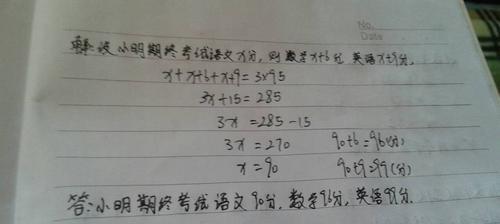 No.
Date
解:设小明期终考试语文x分,则数学x+6分,英语x+9分.
x+x+6+x+9=3×95
3x+15=285
3x=285-15
3x=270 90+6=96(分)
x=90 90+9=99(分)
答:小明期终考试语文90分,数学96分,英语99分.